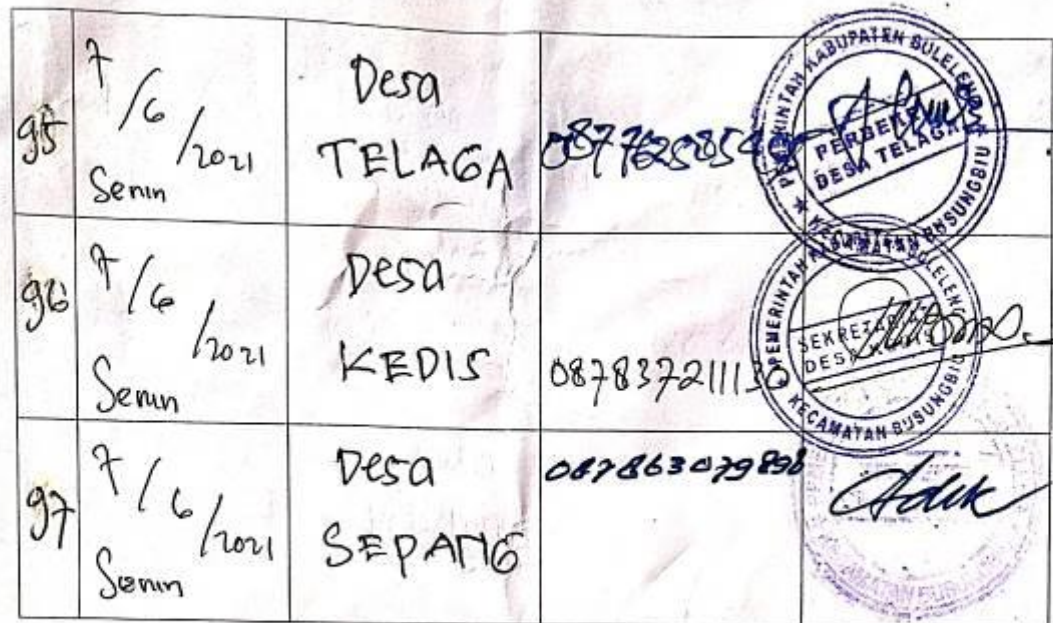 95
7/6/2021
Senin
Desa
TELAGA
PEMERINTAH KABUPATEN BULELENG
DESA TELAGA
KECAMATAN BUSUNGBIU
96
7/6/2021
Senin
Desa
KEDIS
087837211130
PEMERINTAH
BULELENG
DESA
KECAMATAN BUSUNGBIU
97
7/6/2021
Senin
Desa
SEPANG
087863079898